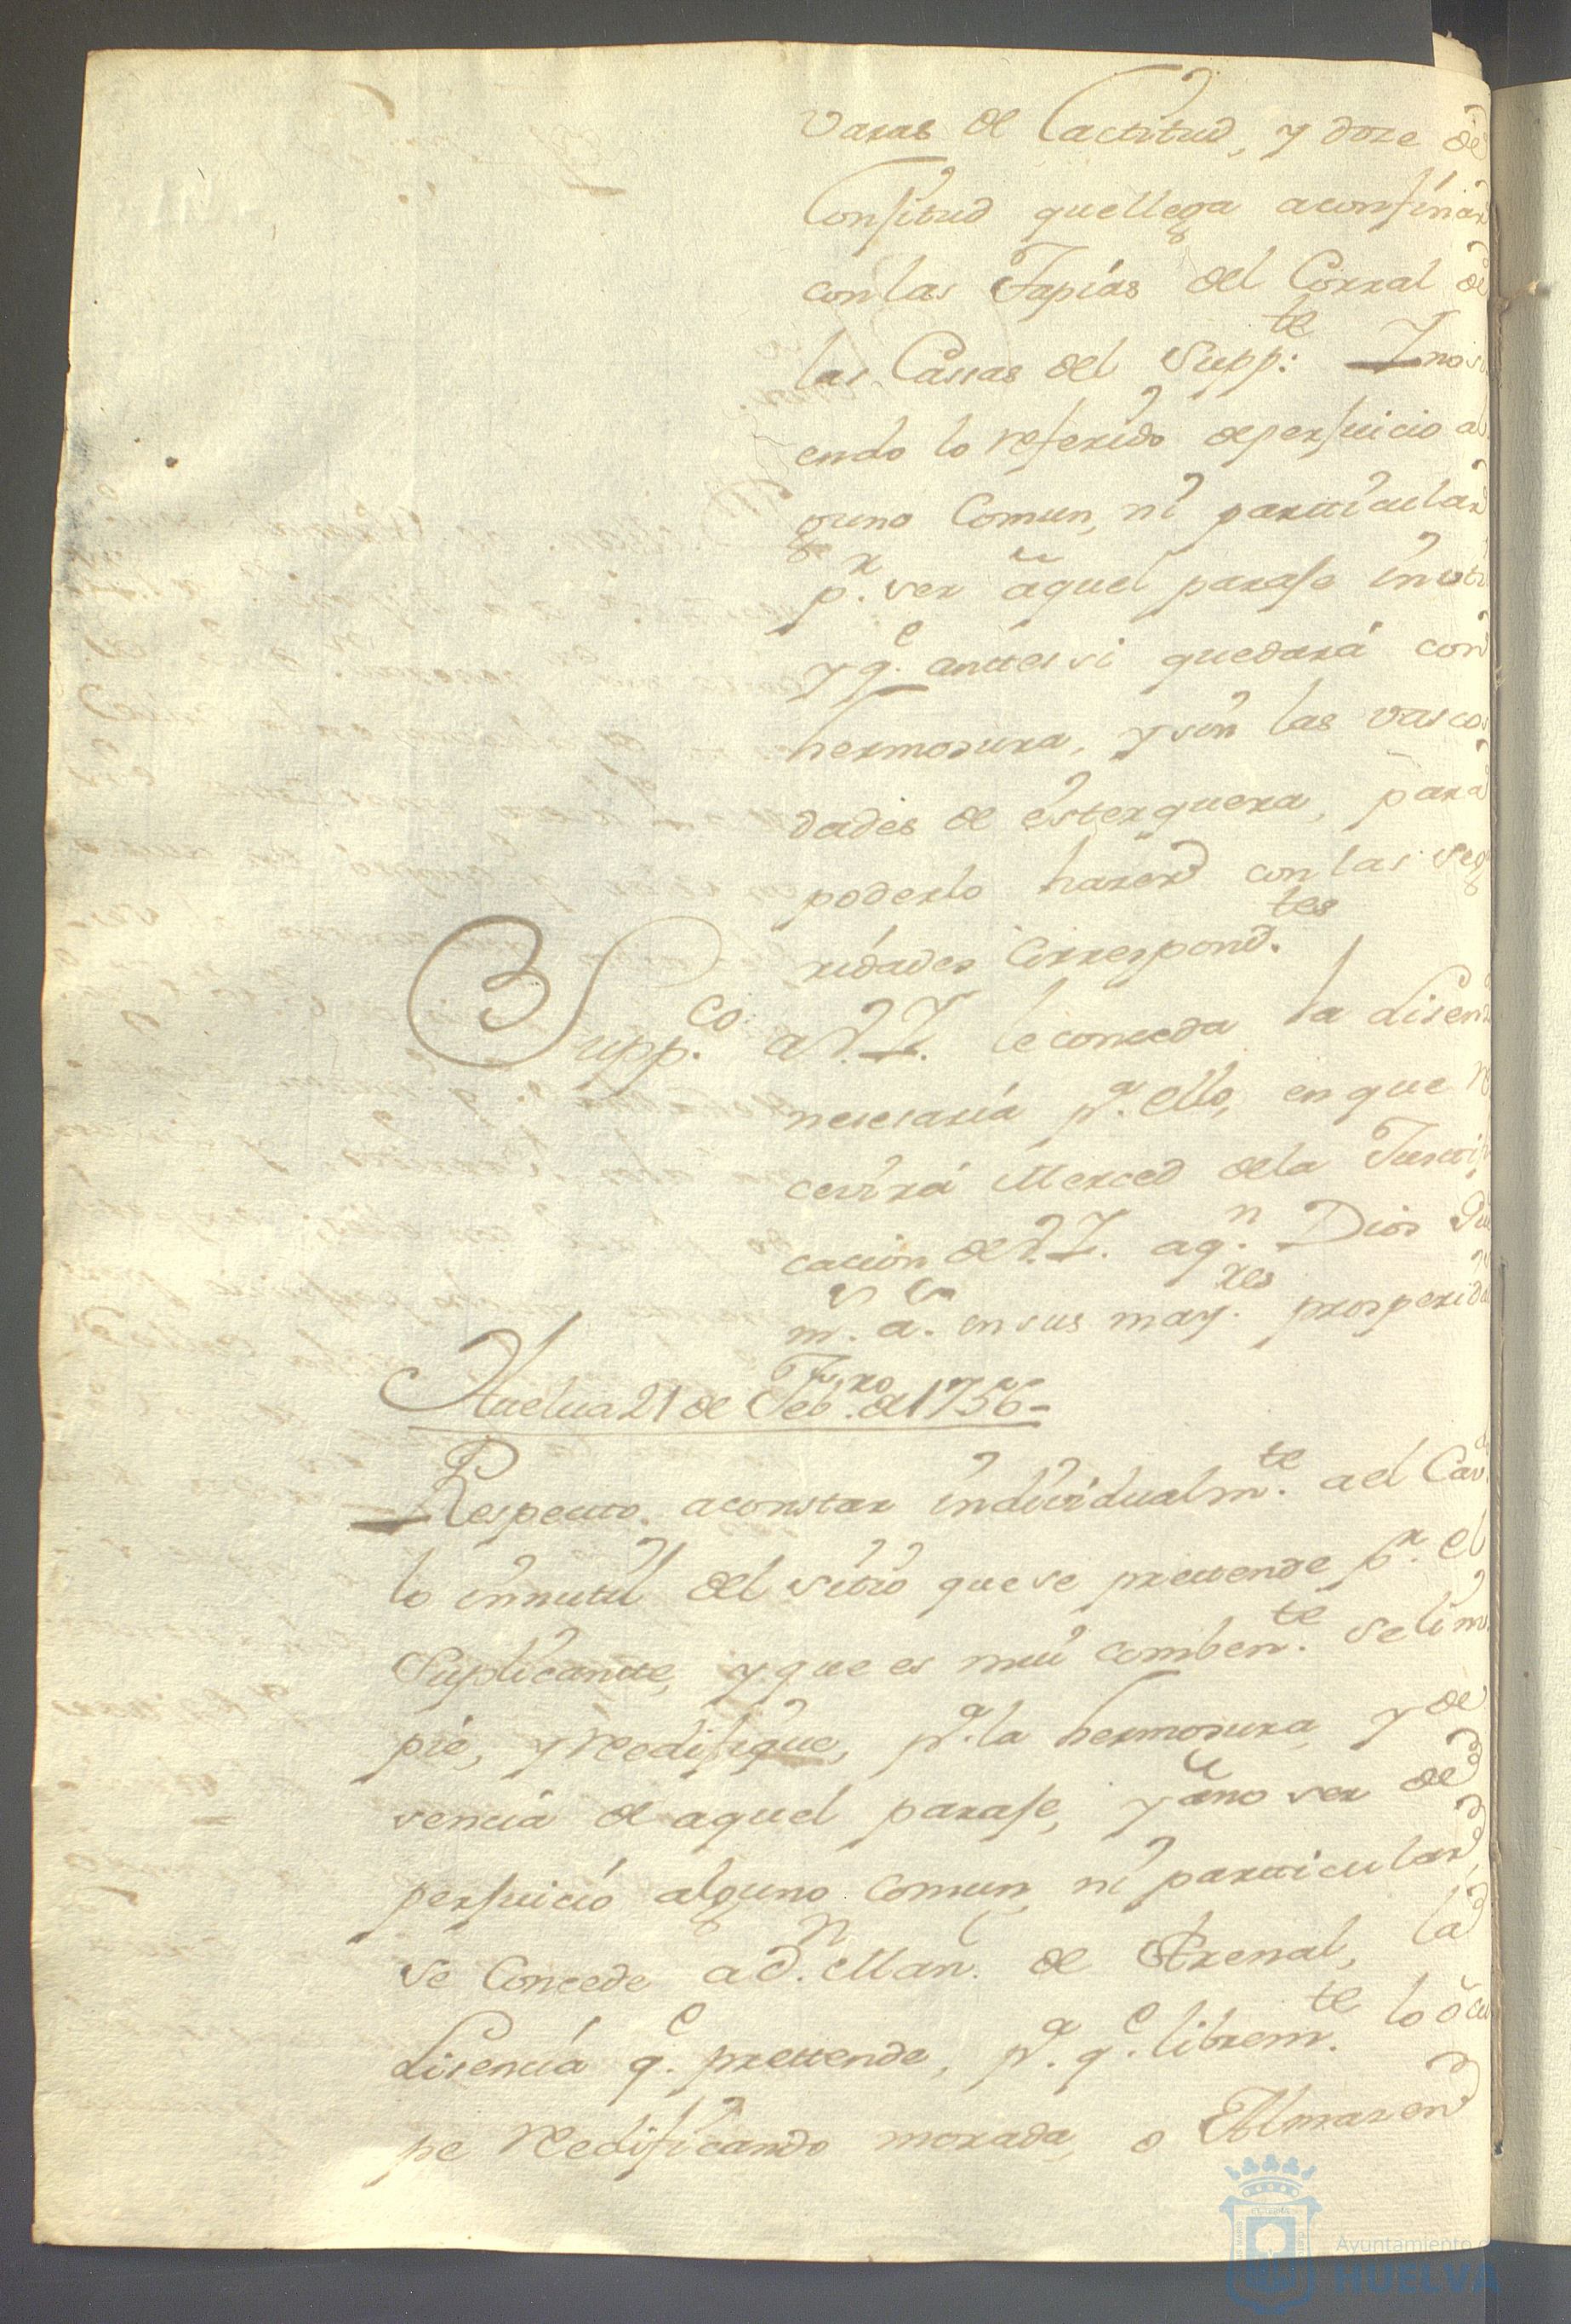 varas de Lactitud, y doze de
Lonjitud que llega a confinar
con las Tapias del Corral de
las Cassas del Supp.te Y no si
endo lo referido de perjuicio al
guno Comun, ni partticular
p.r ser aquel paraje inuti
y q.e anttes si quedará con
hermosura, y sin las vasco
dades de esterquera, para
poderlo hazer con las segu
ridades Correspond.tes
Supp.co a V.S. le conceda la Lisen
nesesaria p.a ello, en que re
cevirá Merced de la Justtifi
cacion de V.S. a q.n Dios Gue
m.s a.s en sus may.res prosperida
Huelua 21 de Feb.ro de 1756=
Respectto. a constar individualm.te a el Cav.
lo innutil del sitio que se prettende p.r el
Suplicantte, y que es mui comben.te se lim
pie, y redifique, p.a la hermosura, y de
sencia de aquel paraje, y a no ser de
perjuicio alguno comun, ni partticular,
se Concede a D.n Man.l de Arenal, la
Lisencia q.e prettende, p.a q.e librem.te lo ocu
pe redificando morada, o Almazen
Ayuntamiento
HUELVA